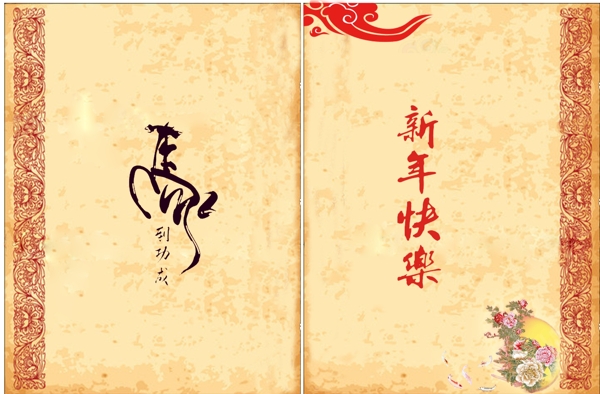 馬到功成
新年快樂